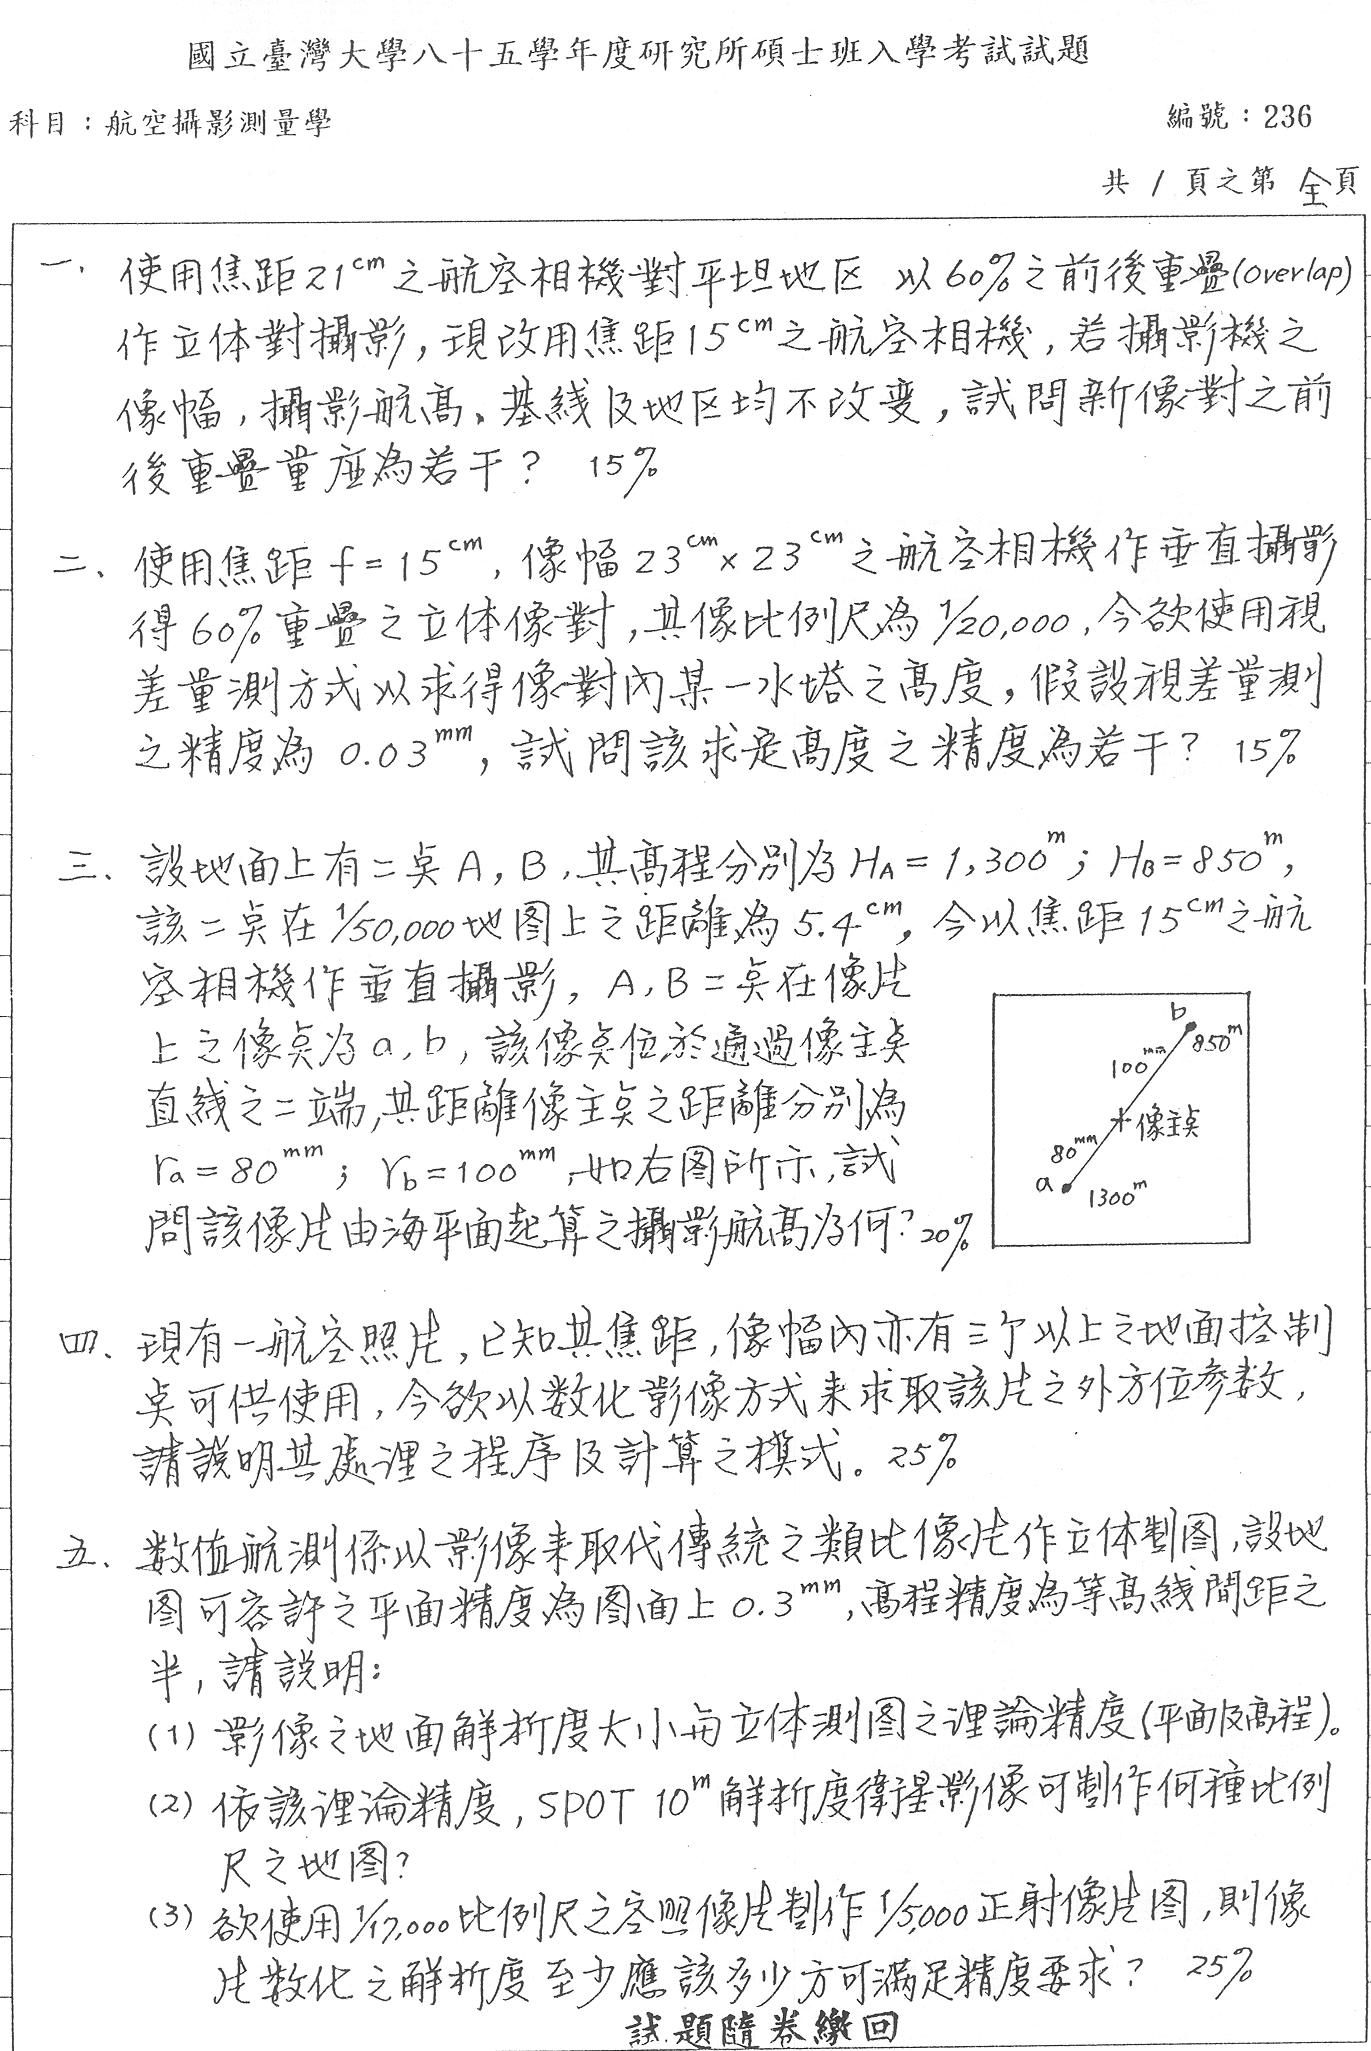 國立臺灣大學八十五學年度研究所碩士班入學考試試題
科目：航空攝影測量學
編號：236
共 1 頁之第 全頁
一、使用焦距21cm之航空相機對平坦地区 以60%之前後重疊(overlap)
作立体對攝影，現改用焦距15cm之航空相機，若攝影機之
像幅，攝影航高、基线及地区均不改变，試問新像對之前
後重疊量应為若干？ 15%
二、使用焦距 f=15cm，像幅23cm×23cm之航空相機作垂直攝影
得60%重疊之立体像對，其像比例尺為1/20,000，今欲使用視
差量測方式以求得像對內某一水塔之高度，假設視差量測
之精度為 0.03mm，試問該求定高度之精度為若干？ 15%
三、設地面上有二奌A，B，其高程分別為HA=1,300m；HB=850m，
該二奌在1/50,000地图上之距離為5.4cm，今以焦距15cm之航
空相機作垂直攝影，A，B二奌在像片
上之像奌为a，b，該像奌位於通過像主奌
直线之二端，其距離像主奌之距離分別為
ra=80mm；rb=100mm，如右图所示，試
問該像片由海平面起算之攝影航高为何？20%
b
850m
100mm
像主奌
80mm
a
1300m
四、現有一航空照片，已知其焦距，像幅內亦有三个以上之地面控制
奌可供使用，今欲以数化影像方式来求取該片之外方位参数，
請說明其處理之程序及計算之模式。25%
五、数值航測係以影像来取代傳統之類比像片作立体製图，設地
图可容許之平面精度為图面上0.3mm，高程精度為等高线間距之
半，請說明：
(1) 影像之地面解析度大小与立体測图之理論精度(平面及高程)。
(2) 依該理論精度，SPOT 10m解析度衛星影像可製作何種比例
尺之地图？
(3) 欲使用1/17,000比例尺之空照像片製作1/5,000正射像片图，則像
片数化之解析度至少應該多少方可滿足精度要求？ 25%
試題隨卷繳回